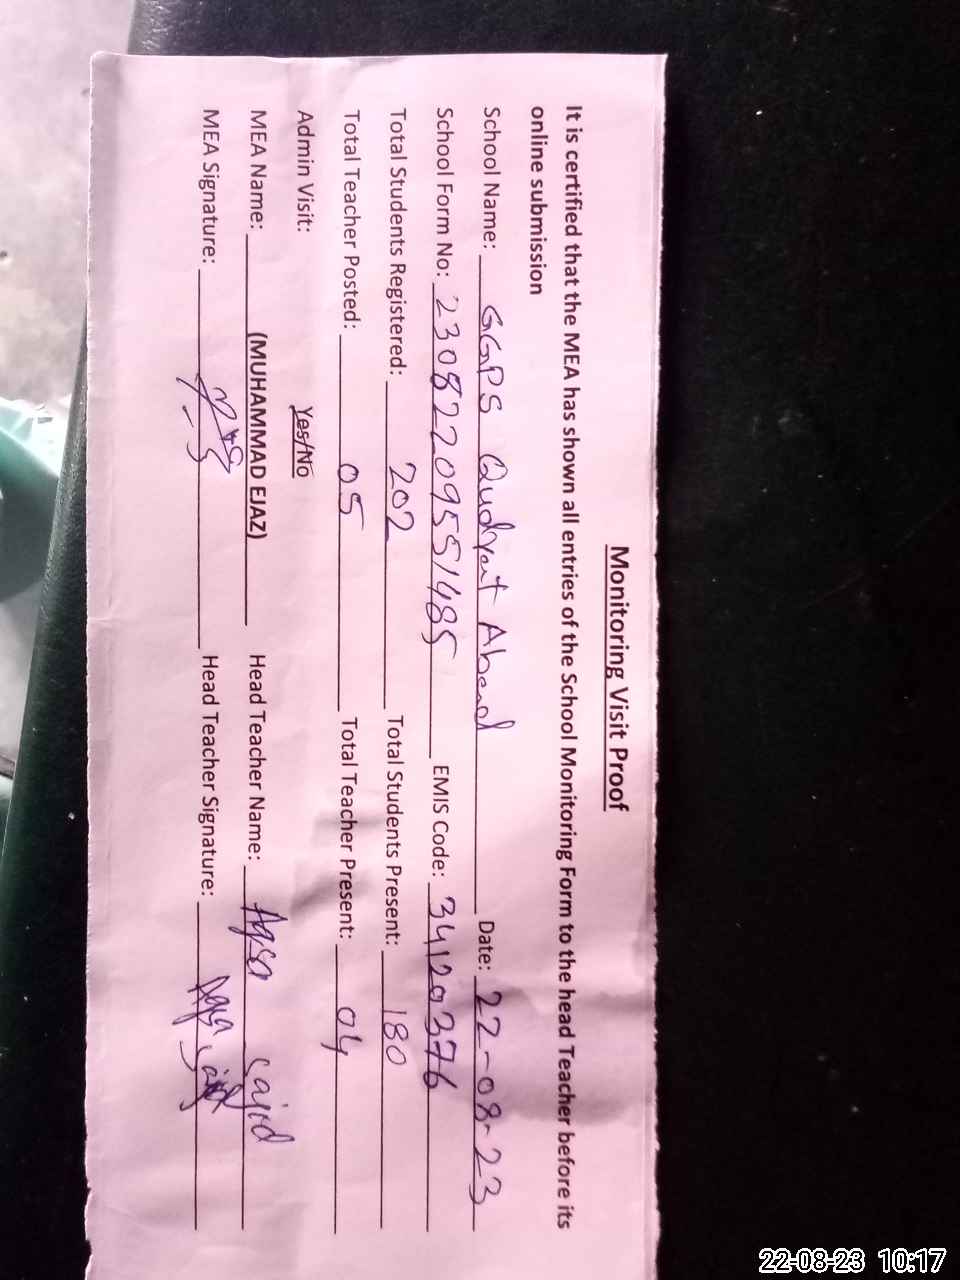 Monitoring Visit Proof
It is certified that the MEA has shown all entries of the School Monitoring Form to the head Teacher before its
online submission
School Name: GGPS Qudrat Abaad Date: 22-08-23
School Form No: 23082209551485 EMIS Code: 34120376
Total Students Registered: 202 Total Students Present: 180
Total Teacher Posted: 05 Total Teacher Present: 04
Admin Visit: Yes/No
MEA Name: (MUHAMMAD EJAZ) Head Teacher Name: Aqsa Sajid
MEA Signature: Head Teacher Signature: Aqsa Sajid
22-08-23 10:17